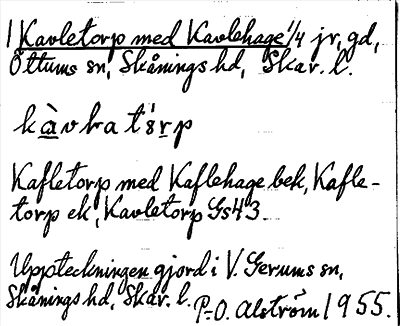 1 Kavletorp med Kavlehage 1/4 jr, gd,
Öttums sn, Skånings hd, Skar. l.
kàvlatórp
Kafletorp med Kaflehage bek, Kafle-
torp ek, Kavletorp Gs43
Uppteckningen gjord i V. Gerums sn,
Skånings hd, Skar. l.
P-O. Alström 1955.